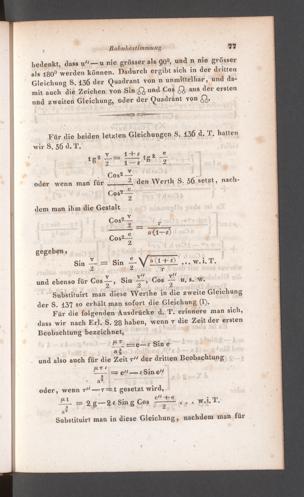 Bahnbestimmung 77
bedenkt, dass u″—u nie grösser als 90°, und n nie grösser
als 180° werden können. Dadurch ergibt sich in der dritten
Gleichung S. 136 der Quadrant von n unmittelbar, und da-
mit auch die Zeichen von Sin ☊ und Cos ☊ aus der ersten
und zweiten Gleichung, oder der Quadrant von ☊.
Für die beiden letzten Gleichungen S. 136 d. T. hatten
wir S. 56 d. T.
tg² v/2 = (1+ε)/(1—ε) tg² e/2
oder wenn man für (Cos² v/2)/(Cos² e/2) den Werth S. 56 setzt, nach-
dem man ihm die Gestalt
(Cos² v/2)/(Cos² e/2) = r/(a(1—ε))
gegeben,
Sin v/2 = Sin e/2 √(a(1+ε)/r) ... w. i. T.
und ebenso für Cos v/2, Sin v″/2, Cos v″/2 u. s. w.
Substituirt man diese Werthe in die zweite Gleichung
der S. 137 so erhält man sofort die Gleichung (l).
Für die folgenden Ausdrücke d. T. erinnere man sich,
dass wir nach Erl. S. 28 haben, wenn τ die Zeit der ersten
Beobachtung bezeichnet,
μτ/a^(3/2) = e — ε Sin e
und also auch für die Zeit τ″ der dritten Beobachtung
= e″ — ε Sin e″
oder, wenn τ″—τ = t gesetzt wird,
μt/a^(3/2) = 2g — 2ε Sin g Cos (e″+e)/2 ... w. i. T.
Substituirt man in diese Gleichung, nachdem man für